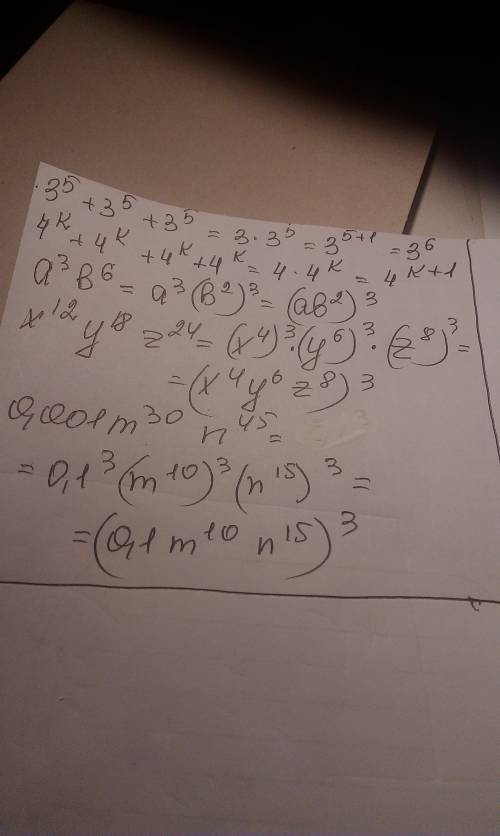 3⁵ + 3⁵ + 3⁵ = 3 · 3⁵ = 3⁵⁺¹ = 3⁶
4ᴷ + 4ᴷ + 4ᴷ + 4ᴷ = 4 · 4ᴷ = 4ᴷ⁺¹
a³b⁶ = a³(b²)³ = (ab²)³
x¹²y¹⁸z²⁴ = (x⁴)³·(y⁶)³·(z⁸)³ =
= (x⁴y⁶z⁸)³
0,001m³⁰n⁴⁵ =
= 0,1³(m¹⁰)³(n¹⁵)³ =
= (0,1m¹⁰n¹⁵)³